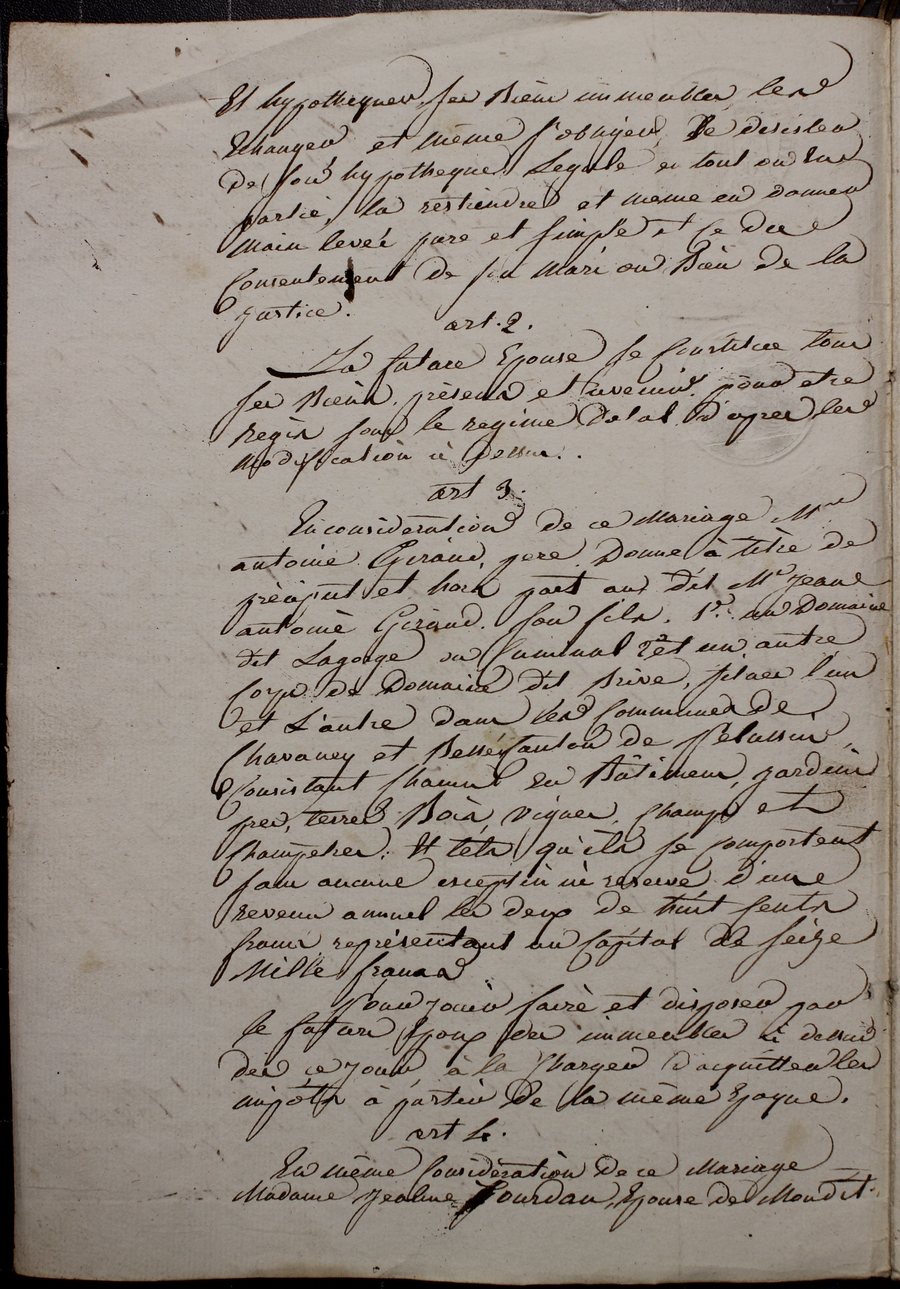 Et hypothequer ses Biens immeubles les
Echanger et même s'obliger, Se desister
de son hypotheque Legale en tout ou En
partie, la restiendre et meme en donner
main levée pure et simple et ce du
Consentement de son Mari ou Bien de la
justice.
art. 2.
La future Epouse se Constitue tous
ses Biens présens et avenirs pour etre
regis sous le regime Dotal d'apres les
modification ci dessus.
art 3.
En consideration de ce Mariage Mr
antoine Giraud pere Donne à titre de
préciput et hors part au dit Mr jean
antoine Giraud son fils. 1º. un Domaine
dit Lagorge ou 2º et un autre
Corps de Domaine dit Brive, situer l'un
et L'autre dans les Communes de
Chavaney et Bessey Canton de Pelussin
Consistant Chacun En Bâtimens, jardins
pres, terres Bois vignes, champs et
Et têls qu'ils se comportent
sans aucune exception ni reserve d'une
revenu annuel les deux de huit Cents
francs représentant un Capital de Seize
Mille francs
Pour jouir faire et disposer par
le futur Epoux des immeubles ci dessus
des ce jour, à la Charger d'acquitter les
impôts à partir de la même Epoque.
art 4.
En même Considération de ce Mariage
Madame jeanne Jourdan, Epouse de Mondit